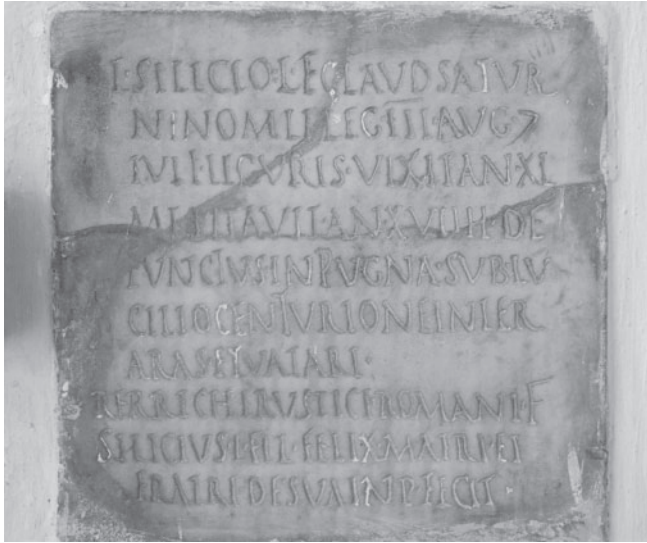 L·SILICIO·L·F CLAVD SATVR
NINO MIL LEG III AVG 7
IVLI LIGVRIS·VIXIT AN XL
MILITAVIT·AN XVIIII DE
FVNCTVS IN PVGNA·SVB LV
CILIO CENTVRIONE INTER
ARAS ET VATARI·
RVSTICI ROMANI·F
SILICIVS L FIL FELIX MATRI ET
FRATRI·DE SVA INP FECIT·